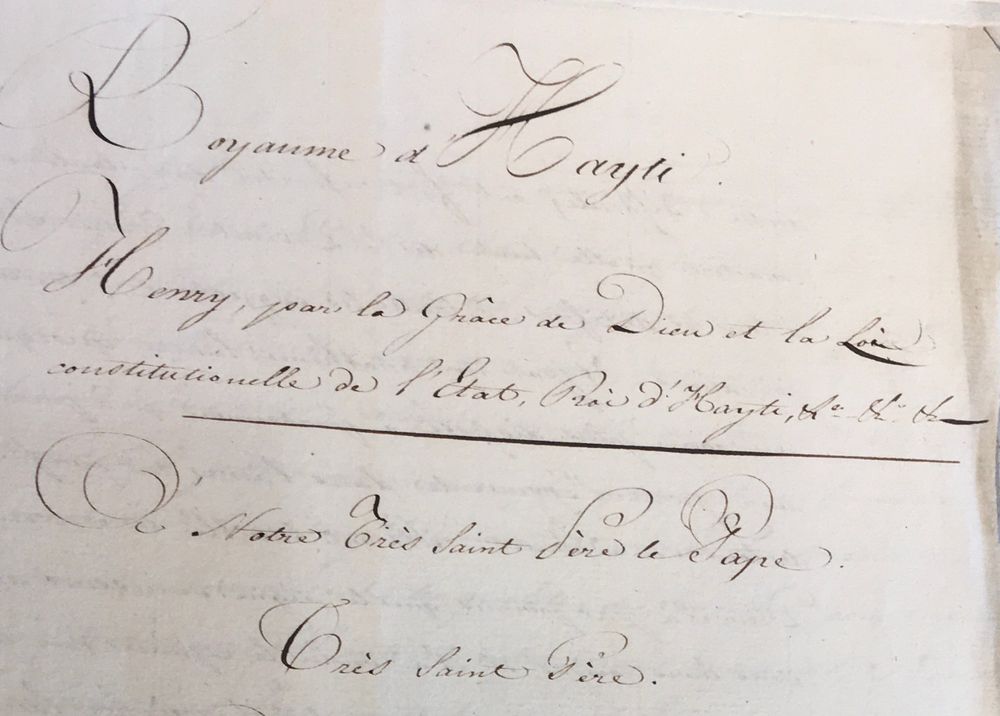 Royaume d'Hayti.
Henry, par la Grâce de Dieu et la Loi
constitutionelle de l'État, Roi d'Hayti, &a. &a. &a
A Notre Très Saint Père le Pape.
Très Saint Père.